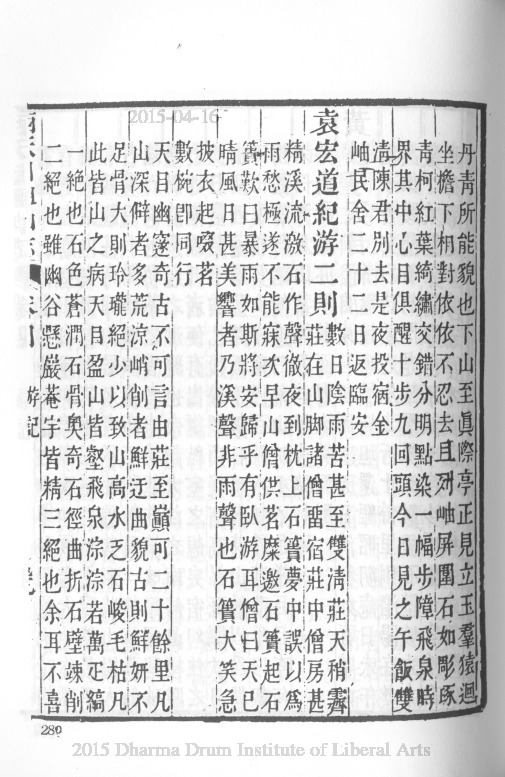 2015-04-16
丹青所能貌也下山至眞際亭正見立玉羣猿迴
坐檐下相對依依不忍去且列岫屏圍石如彫琢
靑柯紅葉綺繡交錯分明點染一幅步障飛泉時
界其中心目俱醒十步九回頭今日見之午飯雙
淸陳君別去是夜投宿金
岫民舍二十二日返臨安
袁宏道紀游二則
數日陰雨苦甚至雙淸莊天稍霽
莊在山脚諸僧畱宿莊中僧房甚
精溪流激石作聲徹夜到枕上石簣夢中誤以爲
雨愁極遂不能寐次早山僧供茗糜邀石簣起石
簣歎曰暴雨如斯將安歸乎有臥游耳僧曰天已
晴風日甚美響者乃溪聲非雨聲也石簣大笑急
披衣起啜茗
數椀卽同行
天目幽邃奇古不可言由莊至巔可二十餘里凡
山深僻者多荒涼峭削者鮮迂曲貌古則鮮姸不
足骨大則玲瓏絕少以致山高水乏石峻毛枯凡
此皆山之病天目盈山皆壑飛泉淙淙若萬疋縞
一絕也石色蒼潤石骨奧奇石徑曲折石壁竦削
二絕也雖幽谷懸巖菴宇皆精三絕也余耳不喜
游記
280
2015 Dharma Drum Institute of Liberal Arts